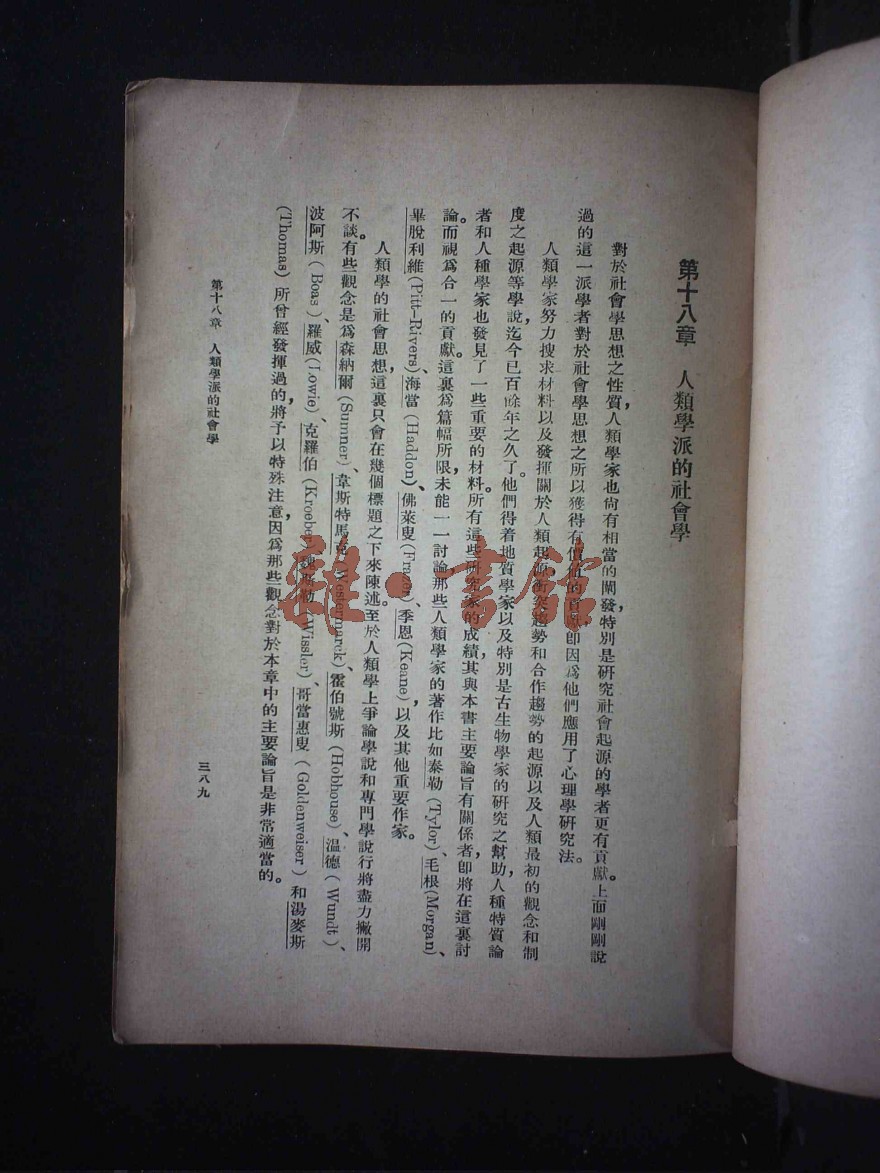 第十八章　人類學派的社會學
對於社會學思想之性質，人類學家也尙有相當的闡發，特別是研究社會起源的學者更有貢獻。上面剛剛說
過的這一派學者對於社會學思想之所以獲得有價值的貢獻卽因爲他們應用了心理學研究法。
人類學家努力搜求材料以及發揮關於人類起源，衝突趨勢和合作趨勢的起源以及人類最初的觀念和制
度之起源等學說，迄今已百餘年之久了。他們得着地質學家以及特別是古生物學家的研究之幫助，人種特質論
者和人種學家也發見了一些重要的材料。所有這些研究家的成績，其與本書主要論旨有關係者，卽將在這裏討
論。而視爲合一的貢獻。這裏爲篇幅所限，未能一一討論那些人類學家的著作比如泰勒(Tylor)、毛根(Morgan)、
畢脫利維(Pitt-Rivers)、海當(Haddon)、佛萊叟(Frazer)、季恩(Keane)，以及其他重要作家。
人類學的社會思想，這裏只會在幾個標題之下來陳述。至於人類學上爭論學說和專門學說行將盡力撇開
不談。有些觀念是爲森納爾(Sumner)、韋斯特馬克(Westermarck)、霍伯號斯(Hobhouse)、溫德(Wundt)、
波阿斯(Boas)、羅威(Lowie)、克羅伯(Kroeber)、魏斯勒(Wissler)、哥當惠叟(Goldenweiser)和湯麥斯
(Thomas)所曾經發揮過的，將予以特殊注意，因爲那些觀念對於本章中的主要論旨是非常適當的。
第十八章　人類學派的社會學
三八九
雜·書館